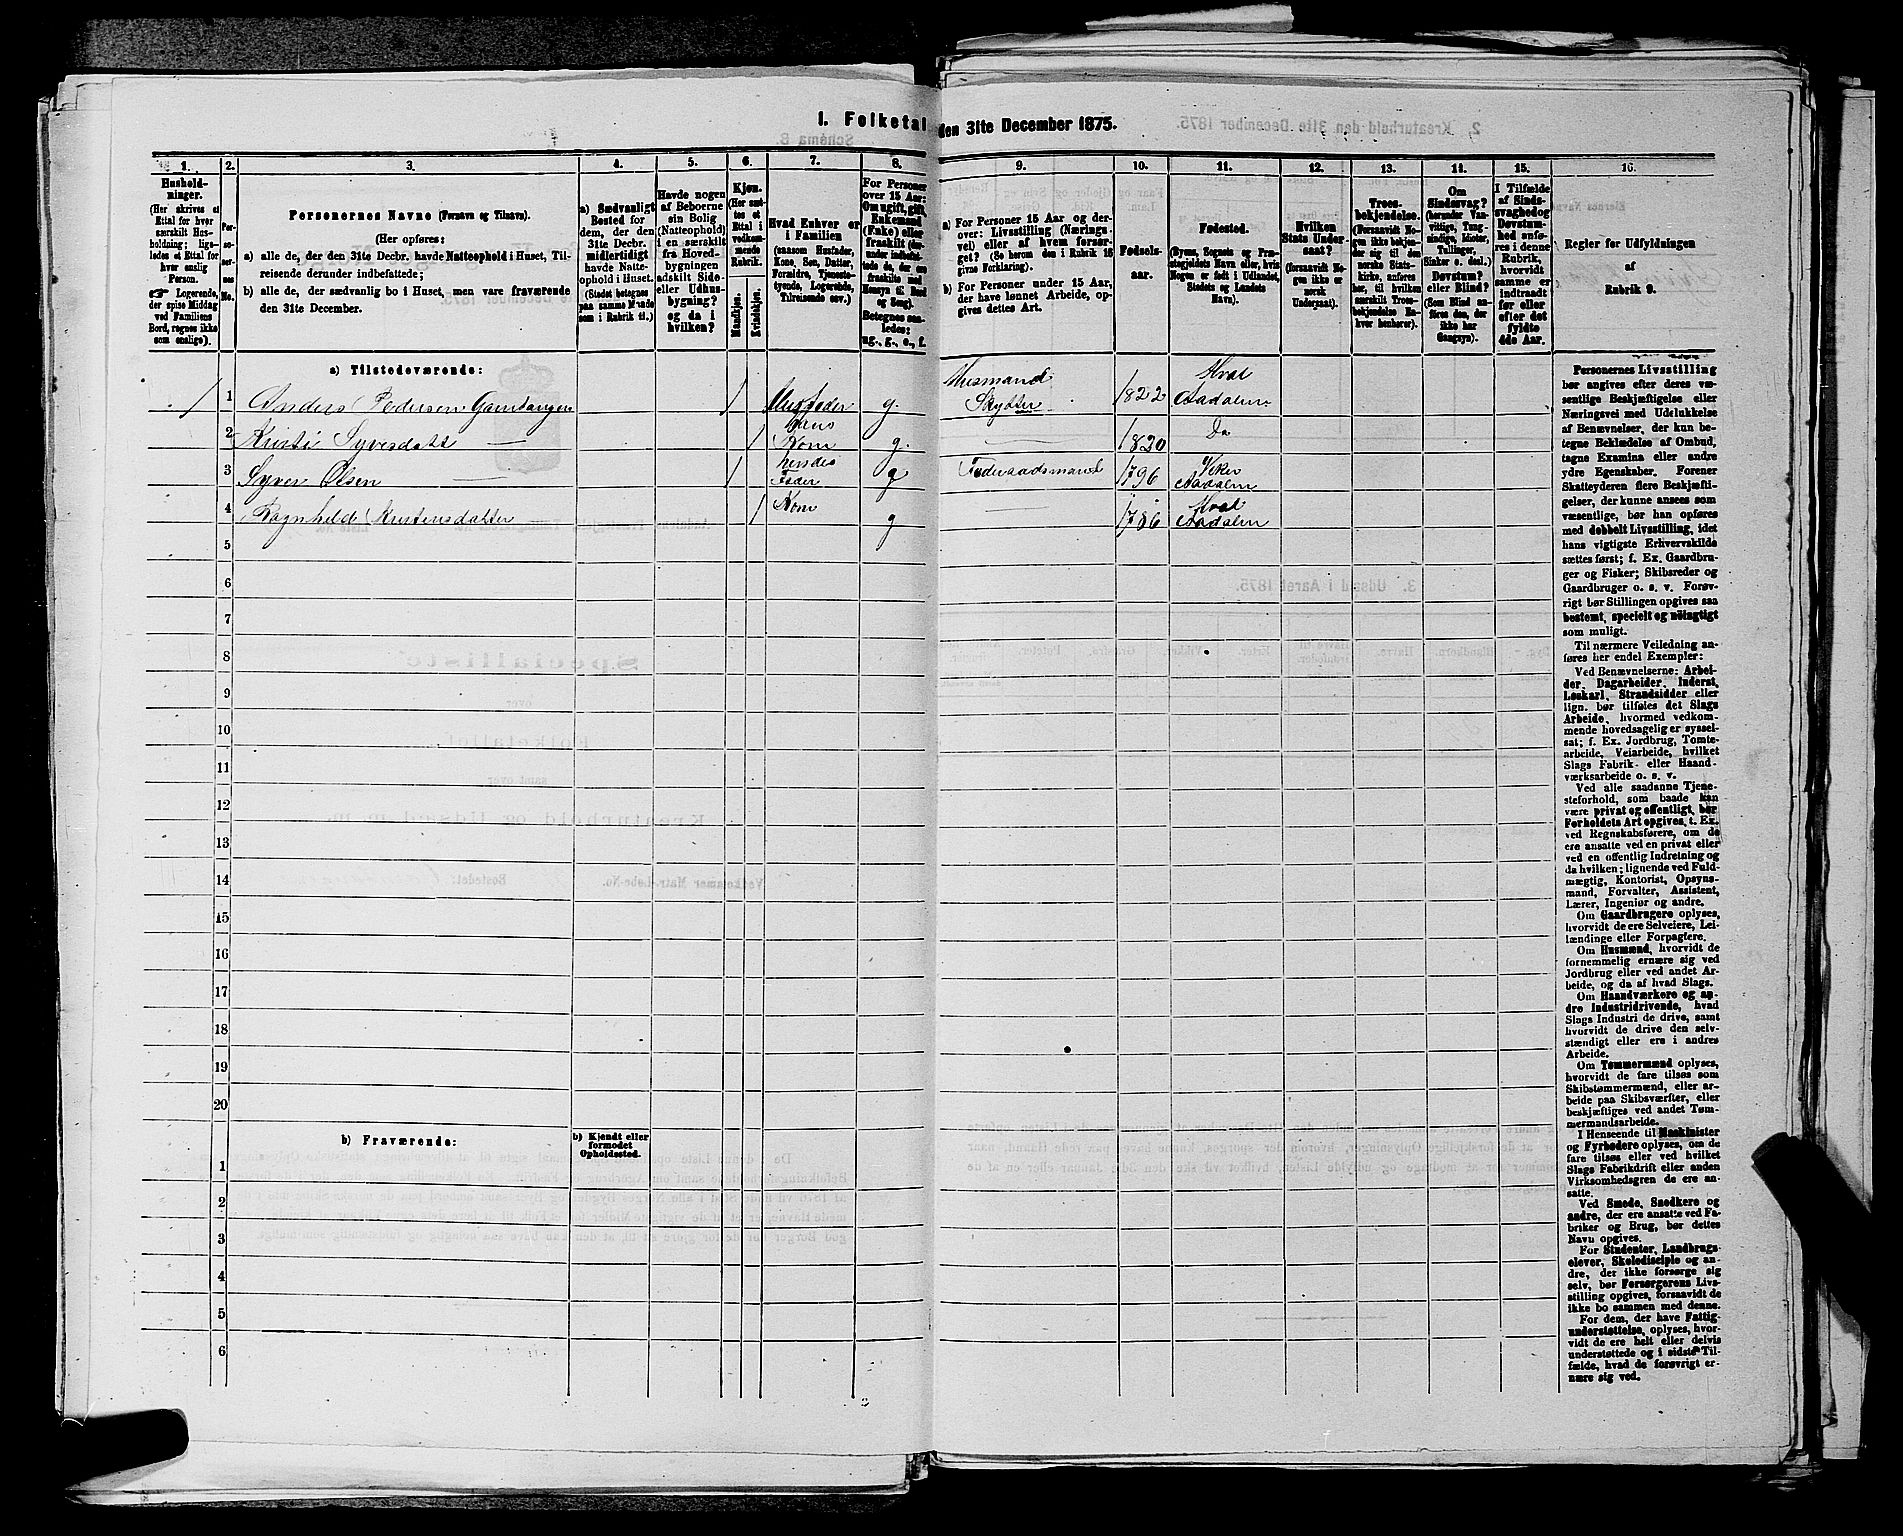 1. Folketal
den 31te December 1875.
1. 2. 3. 4. 5. 6. 7. 8. 9. 10. 11. 12. 13. 14. 15. 16.
Hushold-
ninger.
(Her skrives et
Ettal for hver
særskilt Hus-
holdning; lige-
ledes et Ettal for
hver enslig
Person.
☞ Logerende,
der spise Middag
ved Familiens
Bord, regnes ikke
som enslige).
Per-
so-
ner-
nes
No.
Personernes Navne (Fornavn og Tilnavn).
(Her opføres:
a) alle de, der den 31te Decbr. havde Natteophold i Huset, Til-
reisende derunder indbefattede;
b) alle de, der sædvanlig bo i Huset, men vare fraværende
den 31te December.
a) Sædvanligt
Bosted for
dem, der den
31te Decbr.
midlertidigt
havde Natte-
ophold i Huset.
(Stedet betegnes
paa samme Maade
som i Rubrik 11.)
Havde nogen
af Beboerne
sin Bolig
(Natteophold)
i en særskilt
fra Hoved-
bygningen
adskilt Side-
eller Udhus-
bygning?
og da i
hvilken?
Kjøn.
(Her sæt-
tes et
Ettal i
vedkom-
mende
Rubrik.
Mandkjøn.
Kvindekjøn.
Hvad Enhver er
i Familien
(saasom Husfader,
Kone, Søn, Datter,
Forældre, Tjeneste-
tyende, Logerende,
Tilreisende osv.)
For Personer
over 15 Aar:
Om ugift, gift,
Enkemand
(Enke) eller
fraskilt (der-
under indbefat-
tede de, der ere
fraskilte med
Hensyn til Bord
og Seng).
Betegnes saa-
ledes:
ug., g., e., f.
a) For Personer 15 Aar og der-
over: Livsstilling (Nærings-
vei) eller af hvem forsør-
get? (Se herom den i Rubrik 16
givne Forklaring).
b) For Personer under 15 Aar,
der have lønnet Arbeide, op-
gives dettes Art.
Fødsels-
aar.
Fødested.
(Byens, Sognets og Præ-
stegjeldets Navn eller, hvis
Nogen er født i Udlandet,
Stedets og Landets
Navn.)
Hvilken
Stats Under-
saat?
(forsaavidt No-
gen ikke er
norsk
Undersaat).
Troes-
bekjendelse.
(Forsaavidt No-
gen ikke bekjen-
der sig til den
norske Stats-
kirke, anføres
her, til hvilken
særskilt Troes-
bekjendelse En-
hver henhører).
Om
Sindssvag?
(herunder Van-
vittige, Tung-
sindige, Idioter,
Tullinger,
Sinker o. desl.)
Døvstum?
eller Blind?
(Som Blind an-
føres den, der
ikke har
Gangsyn).
I Tilfælde
af Sinds-
svaghed og
Døvstum-
hed anfø-
res i denne
Rubrik,
hvorvidt
samme er
indtraadt
før eller
efter det
fyldte
4de Aar.
Regler for Udfyldningen
af
Rubrik 9.
a) Tilstedeværende:
1 1 Anders Pedersen Gamtangen 1 Husfader g. Husmand Skytter 1822 Hval Aadalen
2 Kristi Syversdatt — 1 hans Kone g. — 1820 Do
3 Syver Olsen — 1 hendes Fader g Føderaadsmand 1796 Viker Aadalen
4 Ragnhild Kristensdatter 1 Kone g — 1786 Hval Aadalen
5
6
7
8
9
10
11
12
13
14
15
16
17
18
19
20
b) Fraværende:
b) Kjendt eller
formodet
Opholdssted.
1
2
3
4
5
6
Personernes Livsstilling
bør angives efter deres væ-
sentlige Beskjæftigelse eller
Næringsvei med Udelukkelse
af Benævnelser, der kun be-
tegne Beklædelse af Ombud,
tagne Examina eller andre
ydre Egenskaber. Forener
Skatteyderen flere Beskjæfti-
gelser, der kunne ansees som
væsentlige, bør han opføres
med dobbelt Livsstilling, idet
hans vigtigste Erhvervskilde
sættes først; f. Ex. Gaardbru-
ger og Fisker; Skibsreder og
Gaardbruger o. s. v. Forøv-
rigt bør Stillingen opgives saa
bestemt, specielt og nøiagtigt
som muligt.
Til nærmere Veiledning an-
føres her endel Exempler:
Ved Benævnelserne: Arbei-
der, Dagarbeider, Inderst,
Løskarl, Strandsidder eller
lign. bør tilføies det Slags
Arbeide, hvormed vedkom-
mende hovedsagelig er syssel-
sat; f. Ex. Jordbrug, Tomte-
arbeide, Veiarbeide, hvilket
Slags Fabrik- eller Haand-
værksarbeide o. s. v.
Ved alle saadanne Tjene-
steforhold, som baade kan
være privat og offentligt, bør
Forholdets Art opgives, t. Ex.
ved Regnskabsførere, om de
ere ansatte ved en privat eller
ved en offentlig Indretning og
da hvilken; lignende ved Fuld-
mægtig, Kontorist, Opsyns-
mand, Forvalter, Assistent,
Lærer, Ingeniør og andre.
Om Gaardbrugere oplyses,
hvorvidt de ere Selveiere, Lei-
lændinge eller Forpagtere.
Om Husmænd, hvorvidt de
fornemmelig ernære sig ved
Jordbrug eller ved andet Ar-
beide, og da af hvad Slags.
Om Haandværkere og an-
dre Industridrivende, hvad
Slags Industri de drive, samt
hvorvidt de drive den selv-
stændigt eller ere i andres
Arbeide.
Om Tømmermænd oplyses,
hvorvidt de fare tilsøs som
Skibstømmermænd, eller ar-
beide paa Skibsværfter, eller
beskjæftiges ved andet Tøm-
mermandsarbeide.
I Henseende til Maskinister
og Fyrbødere oplyses, om de
fare tilsøs eller ved hvilket
Slags Fabrikdrift eller anden
Virksomhedsgren de ere an-
satte.
Ved Smede, Snedkere og
andre, der ere ansatte ved Fa-
briker og Brug, bør dettes
Navn opgives.
For Studenter, Landbrugs-
elever, Skoledisciple og an-
dre, der ikke forsørge sig
selv, bør Forsørgerens Livs-
stilling opgives, forsaavidt de
ikke bo sammen med denne.
For dem, der have Fattig-
understøttelse, oplyses, hvor-
vidt de ere helt eller delvis
understøttede og i sidste Til-
fælde, hvad de forøvrigt er-
nære sig ved.